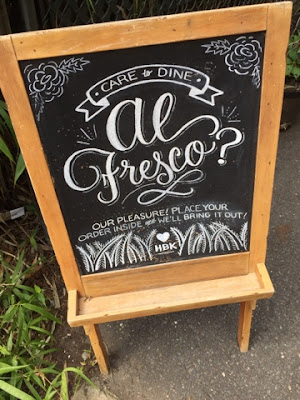 CARE to DINE
al
Fresco?
OUR PLEASURE! PLACE YOUR
ORDER INSIDE and WE'LL BRING IT OUT!
HBK